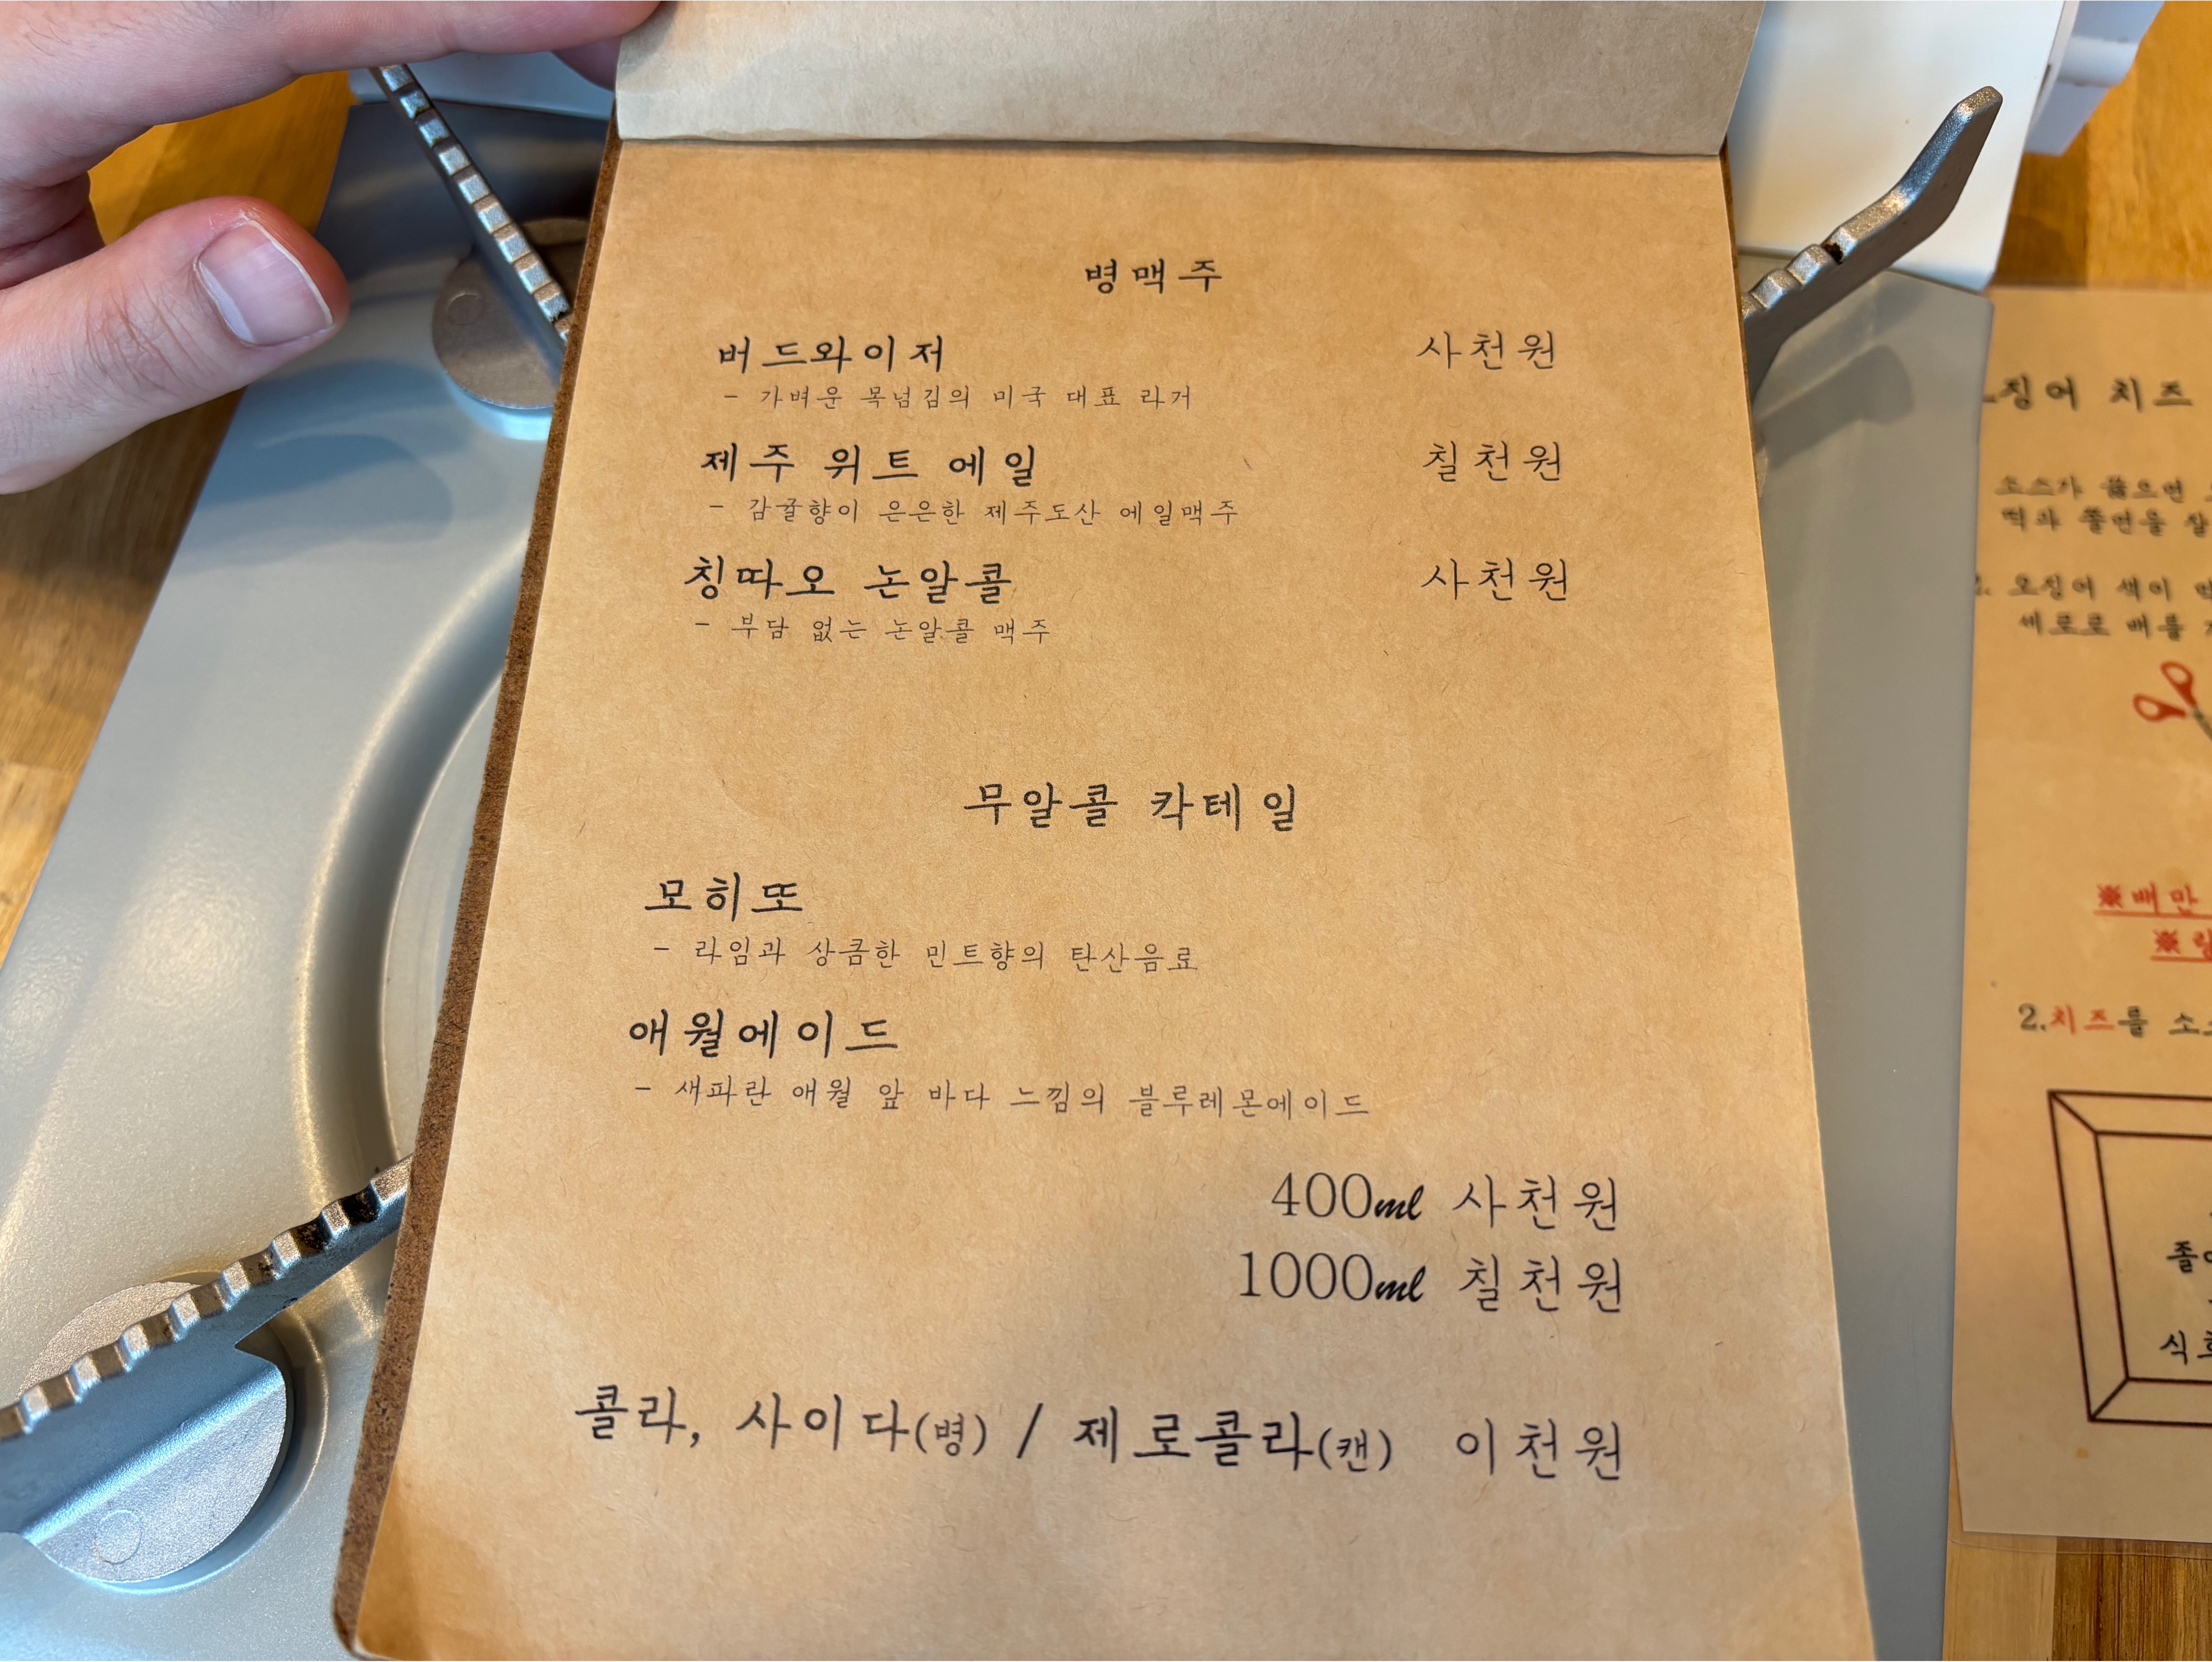 병맥주
버드와이저 사천원
- 가벼운 목넘김의 미국 대표 라거
제주 위트 에일 칠천원
- 감귤향이 은은한 제주도산 에일맥주
칭따오 논알콜 사천원
- 부담 없는 논알콜 맥주
무알콜 칵테일
모히또
- 라임과 상큼한 민트향의 탄산음료
애월에이드
- 새파란 애월 앞 바다 느낌의 블루레몬에이드
400ml 사천원
1000ml 칠천원
콜라, 사이다(병) / 제로콜라(캔) 이천원
치즈
소스가 끓으면
떡과 쫄면을
오징어 색이
세로로 배를
※배만
※
2.치즈를